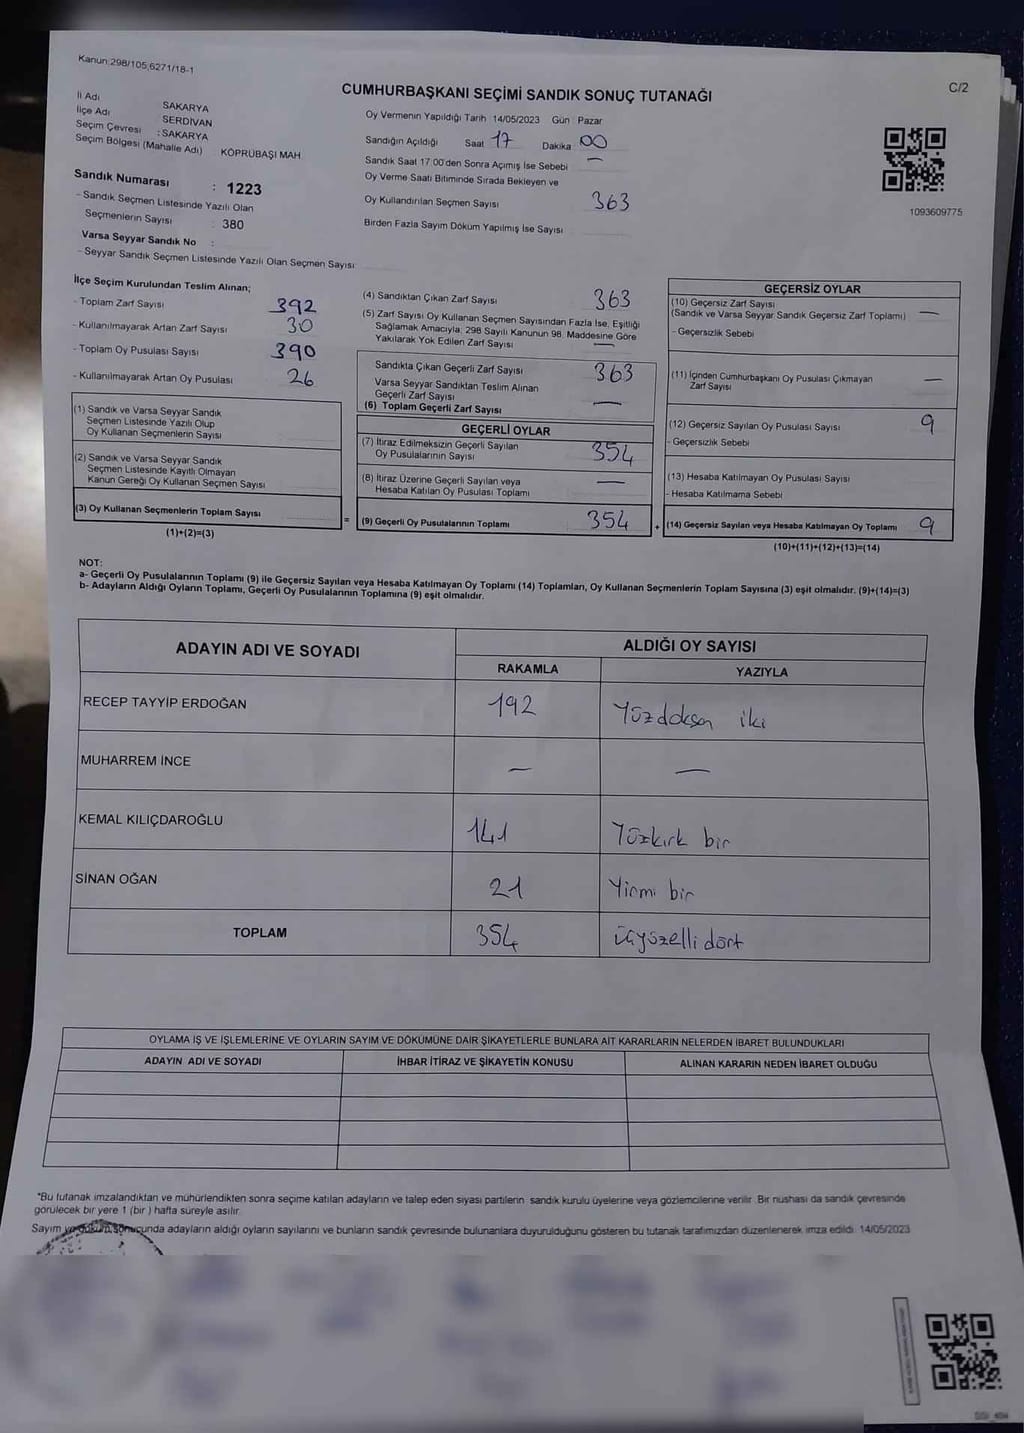 Kanun;298/105;6271/18-1
C/2
CUMHURBAŞKANI SEÇİMİ SANDIK SONUÇ TUTANAĞI
İl Adı SAKARYA
İlçe Adı SERDİVAN
Seçim Çevresi : SAKARYA
Seçim Bölgesi (Mahalle Adı) KÖPRÜBAŞI MAH
Sandık Numarası : 1223
- Sandık Seçmen Listesinde Yazılı Olan
Seçmenlerin Sayısı 380
Varsa Seyyar Sandık No :
- Seyyar Sandık Seçmen Listesinde Yazılı Olan Seçmen Sayısı
Oy Vermenin Yapıldığı Tarih 14/05/2023 Gün Pazar
Sandığın Açıldığı Saat 17 Dakika 00
Sandık Saat 17 00'den Sonra Açımış İse Sebebi —
Oy Verme Saati Bitiminde Sırada Bekleyen ve
Oy Kullandırılan Seçmen Sayısı 363
Birden Fazla Sayım Döküm Yapılmış İse Sayısı
1093609775
İlçe Seçim Kurulundan Teslim Alınan;
- Toplam Zarf Sayısı 392
- Kullanılmayarak Artan Zarf Sayısı 30
- Toplam Oy Pusulası Sayısı 390
- Kullanılmayarak Artan Oy Pusulası 26
(1) Sandık ve Varsa Seyyar Sandık
Seçmen Listesinde Yazılı Olup
Oy Kullanan Seçmenlerin Sayısı
(2) Sandık ve Varsa Seyyar Sandık
Seçmen Listesinde Kayıtlı Olmayan
Kanun Gereği Oy Kullanan Seçmen Sayısı
(3) Oy Kullanan Seçmenlerin Toplam Sayısı
(1)+(2)=(3)
(4) Sandıktan Çıkan Zarf Sayısı 363
(5) Zarf Sayısı Oy Kullanan Seçmen Sayısından Fazla İse, Eşitliği
Sağlamak Amacıyla; 298 Sayılı Kanunun 98. Maddesine Göre
Yakılarak Yok Edilen Zarf Sayısı —
Sandıkta Çıkan Geçerli Zarf Sayısı 363
Varsa Seyyar Sandıktan Teslim Alınan
Geçerli Zarf Sayısı —
(6) Toplam Geçerli Zarf Sayısı
GEÇERLİ OYLAR
(7) İtiraz Edilmeksizin Geçerli Sayılan
Oy Pusulalarının Sayısı 354
(8) İtiraz Üzerine Geçerli Sayılan veya
Hesaba Katılan Oy Pusulası Toplamı —
= (9) Geçerli Oy Pusulalarının Toplamı 354 +
GEÇERSİZ OYLAR
(10) Geçersiz Zarf Sayısı
(Sandık ve Varsa Seyyar Sandık Geçersiz Zarf Toplamı) —
- Geçersizlik Sebebi
(11) İçinden Cumhurbaşkanı Oy Pusulası Çıkmayan
Zarf Sayısı —
(12) Geçersiz Sayılan Oy Pusulası Sayısı 9
- Geçersizlik Sebebi
(13) Hesaba Katılmayan Oy Pusulası Sayısı
- Hesaba Katılmama Sebebi
(14) Geçersiz Sayılan veya Hesaba Katılmayan Oy Toplamı 9
(10)+(11)+(12)+(13)=(14)
NOT:
a- Geçerli Oy Pusulalarının Toplamı (9) ile Geçersiz Sayılan veya Hesaba Katılmayan Oy Toplamı (14) Toplamları, Oy Kullanan Seçmenlerin Toplam Sayısına (3) eşit olmalıdır. (9)+(14)=(3)
b- Adayların Aldığı Oyların Toplamı, Geçerli Oy Pusulalarının Toplamına (9) eşit olmalıdır.
ADAYIN ADI VE SOYADI ALDIĞI OY SAYISI
RAKAMLA YAZIYLA
RECEP TAYYİP ERDOĞAN 192 Yüzdoksan iki
MUHARREM İNCE — —
KEMAL KILIÇDAROĞLU 141 Yüzkırk bir
SİNAN OĞAN 21 Yirmi bir
TOPLAM 354 üçyüzelli dört
OYLAMA İŞ VE İŞLEMLERİNE VE OYLARIN SAYIM VE DÖKÜMÜNE DAİR ŞİKAYETLERLE BUNLARA AİT KARARLARIN NELERDEN İBARET BULUNDUKLARI
ADAYIN ADI VE SOYADI İHBAR İTİRAZ VE ŞİKAYETİN KONUSU ALINAN KARARIN NEDEN İBARET OLDUĞU
*Bu tutanak imzalandıktan ve mühürlendikten sonra seçime katılan adayların ve talep eden siyası partilerin sandık kurulu üyelerine veya gözlemcilerine verilir. Bir nüshası da sandık çevresinde
görülecek bir yere 1 (bir ) hafta süreyle asılır.
Sayım ve döküm sonucunda adayların aldığı oyların sayılarını ve bunların sandık çevresinde bulunanlara duyurulduğunu gösteren bu tutanak tarafımızdan düzenlenerek imza edildi. 14/05/2023